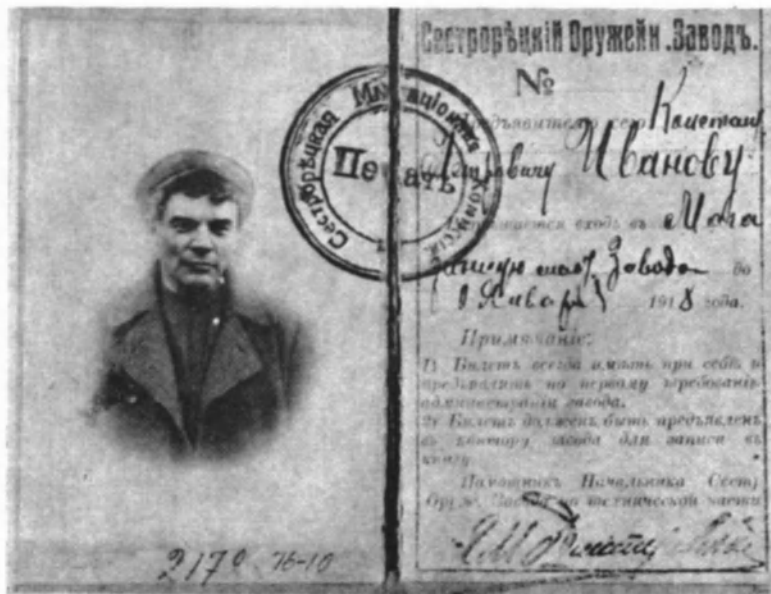 Сестрорѣцкій Оружейн. Заводъ.
№
Предъявителю сего Констан
Петровичу Иванову
входъ въ Мага
завода до
1 Января 1918 года.
Примѣчаніе:
1) Билетъ всегда имѣть при себѣ и
предъявлять по первому требованію
администраціи завода.
2) Билетъ долженъ быть предъявленъ
въ контору завода для записи въ
книгу
Помощникъ Начальника Сестр
Оруж. Завода по технической части
Сестрорѣцкая Коммиссія
Печать
2170 76-10